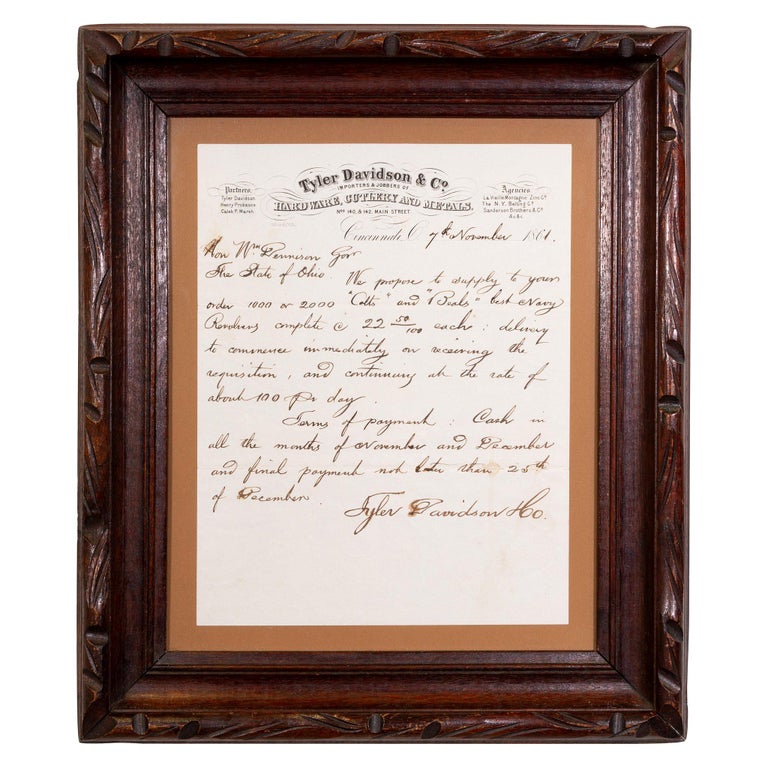 Tyler Davidson & Co.
IMPORTERS & JOBBERS OF
HARDWARE, CUTLERY AND METALS.
Nos 140, & 142, MAIN STREET.
Partners.
Tyler Davidson
Henry Probasco
Caleb P. Marsh.
Agencies
La Vieille Montagne Zinc Co.
The N.Y. Belting Co.
Sanderson Brothers & Co.
&c &c.
Cincinnati, O. 7th November 1861.
Hon Wm Dennison Govr
The State of Ohio. We propose to supply to your
order 1000 or 2000 "Colts" and "Beals" best Navy
Revolvers complete @ 22 50/100 each: delivery
to commence immediately on receiving the
requisition, and continuing at the rate of
about 100 Pr day.
Terms of payment: Cash in
all the months of November and December
and final payment not later than 25th
of December.
Tyler Davidson & Co.